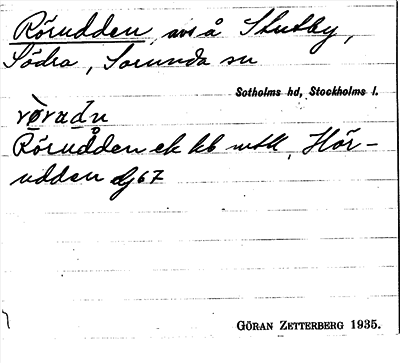 Rörudden, avs å Stutby,
Södra, Sorunda sn
Sotholms hd, Stockholms l.
Rörudden ek kb wstk, Hör-
udden dj 67
GÖRAN ZETTERBERG 1935.